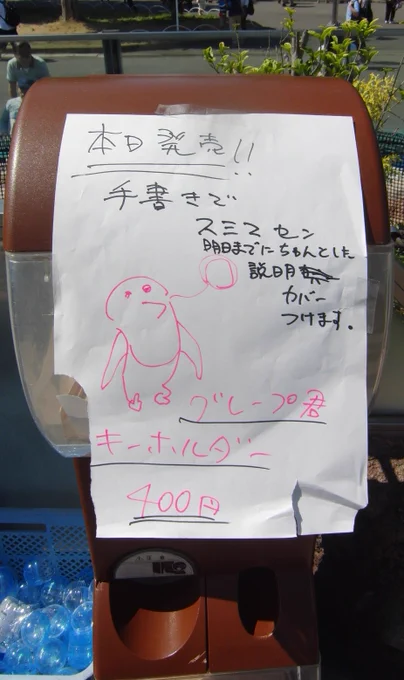 本日発売!!
手書きで
スミマセン
明日までにちゃんとした
説明
カバー
つけます。
グレープ君
キーホルダー
400円